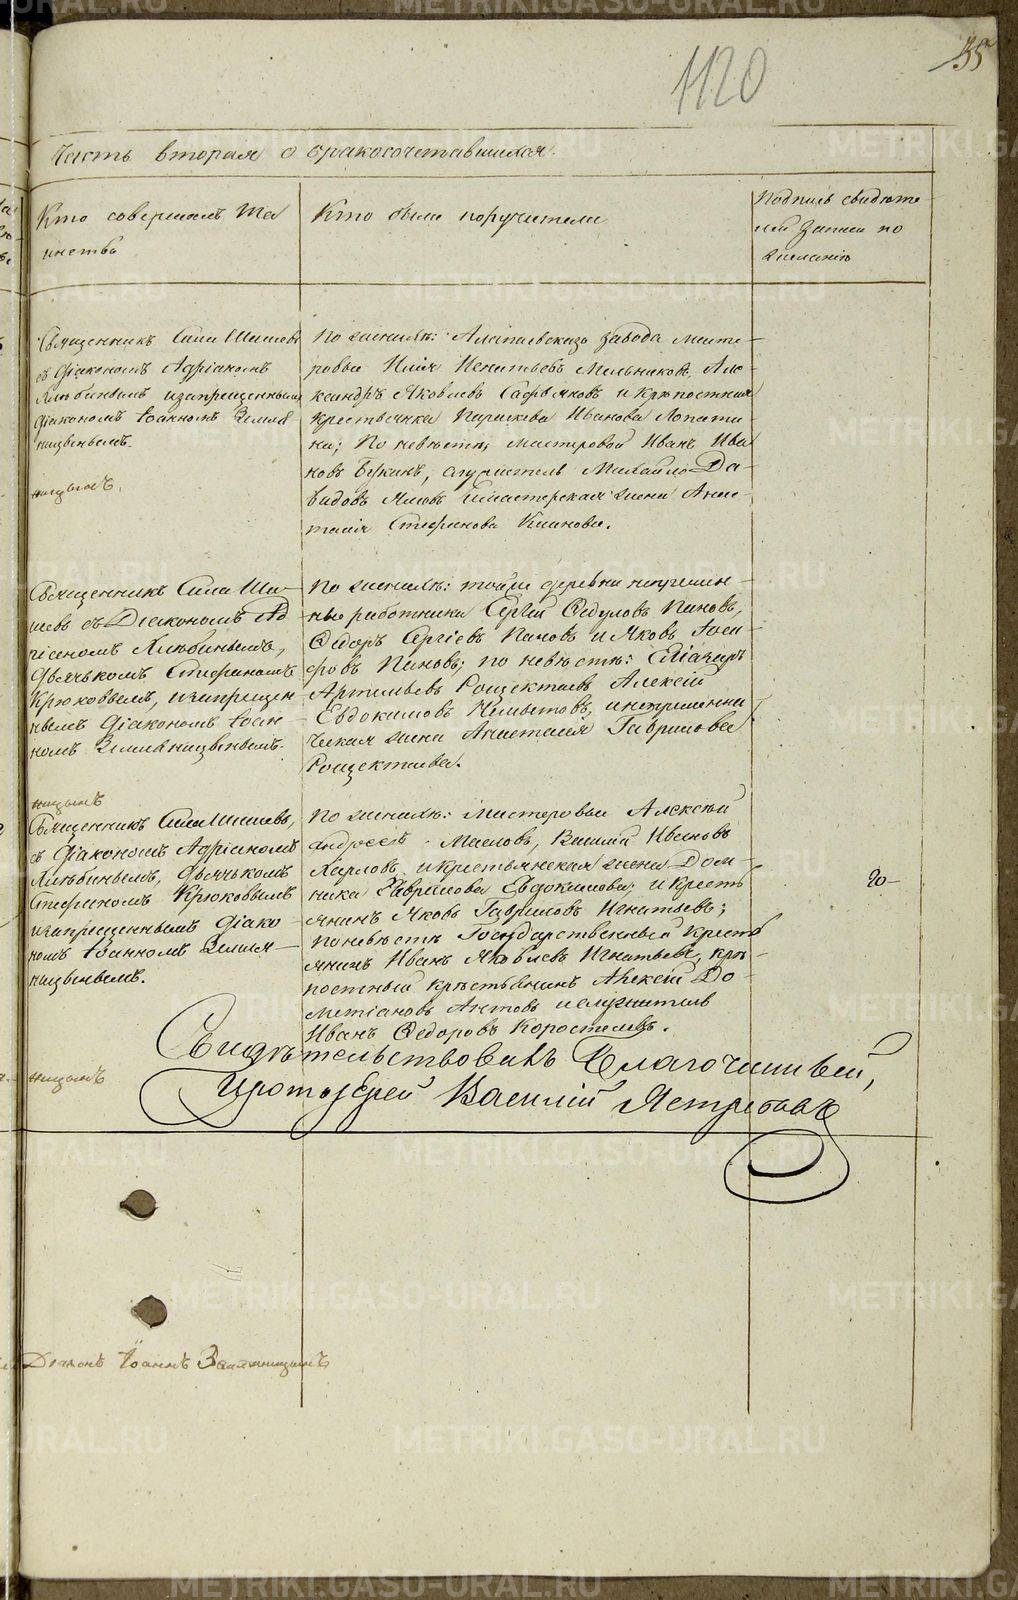 35
1120
Часть вторая о бракосочетавшихся.
Кто совершалъ Та
инство
Кто были поручители
Подпись свидѣте
лей записи по
желанію
Священникъ Сила Шишевъ
съ Діакономъ Адріаномъ
Любинымъ изапрещеннымъ
Діакономъ Іоанномъ
По женихѣ: Алапаевскаго завода масте-
ровые Илія Игнатьевъ Мельниковъ, Але-
ксандръ Яковлевъ Сафьяновъ и крѣпостная
крестьянка Параскева Иванова Лопати-
на; По невѣстѣ; мастеровой Иванъ Ива
новъ служитель Михайло Да-
видовъ имастерская жена Анас-
тасія Стефанова
Священникъ Сила Ши-
шевъ съ Діакономъ Ад
ріаномъ Любинымъ,
Дьячькомъ Стефаномъ
Крюковымъ, изапрещен
нымъ Діакономъ Іоан
номъ
По женихѣ: тойже деревни непремен-
ные работники Сергѣй Ѳедуловъ Пановъ,
Ѳедоръ Сергіевъ Пановъ и Яковъ Іоси-
фовъ Пановъ; по невѣстѣ: Еліазаръ
Артемьевъ Рощектаевъ Алексѣй
Евдокимовъ инепременни
ческая жена Анастасія Гаврилова
Рощектаева.
Священникъ Сила Шишевъ,
съ Діакономъ Адріаномъ
Любинымъ, Дьячькомъ
Стефаномъ Крюковымъ
изапрещеннымъ Діако-
номъ Іоанномъ
По женихѣ: Мастеровые Алексѣй
Андреевъ Масловъ, Василій Ивановъ
Харловъ, икрестьянская жена Дом-
ника Гаврилова Евдокимова; и кресть
янинъ Яковъ Гавриловъ Игнатьевъ;
Поневѣстѣ Государственный кресть
янинъ Иванъ Яковлевъ Игнатьевъ, крѣ-
постный крѣстьянинъ Алексѣй До-
метіановъ Аитовъ ислужитель
Иванъ Ѳедоровъ Коростелевъ.
20-
Свидѣтельствовалъ Благочинный,
Протоіерей Василій Ястребовъ
Діаконъ Іоаннъ